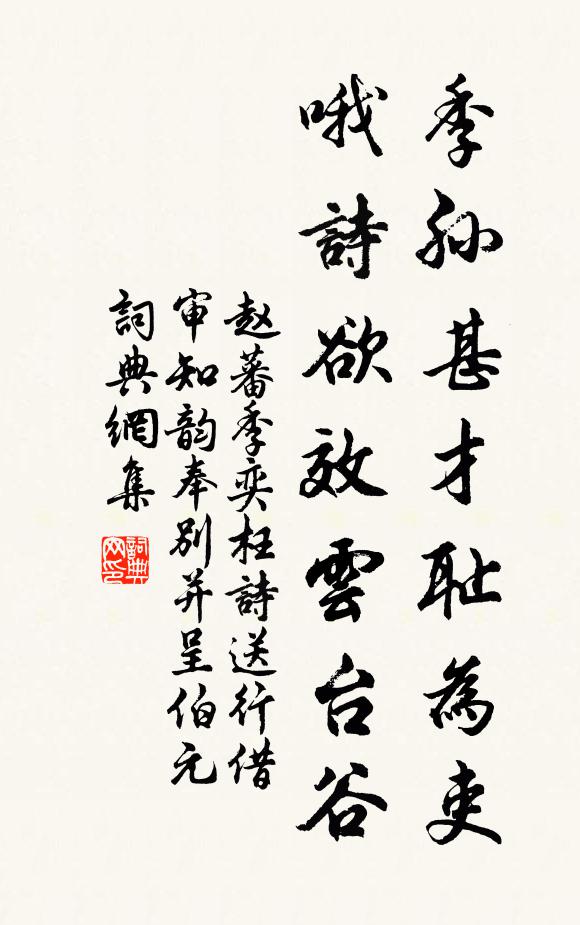 季孙甚才耻為吏
哦詩欲效雲台谷
赵蕃季奕枉詩送行借
审知韵奉別并呈伯元
詞典網集
詞典
网印